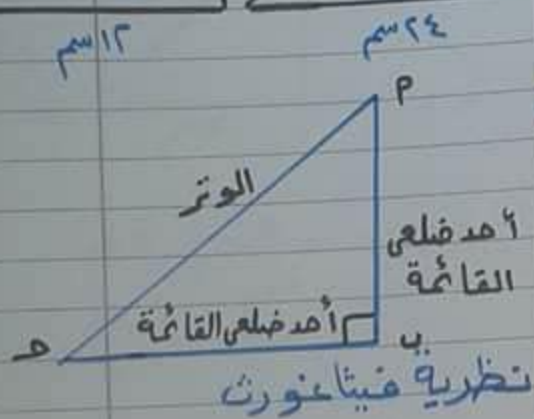 ٢٤ سم
١٢ سم
م
الوتر
أحد ضلعى
القائمة
أحد ضلعى القائمة
ب
حـ
نظرية فيثاغورث